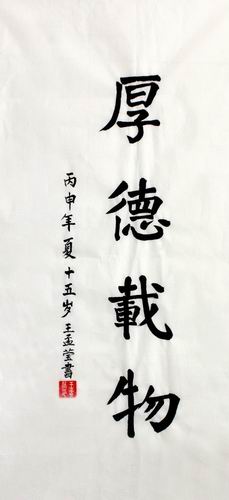 厚德載物
丙申年夏十五岁王孟莹書